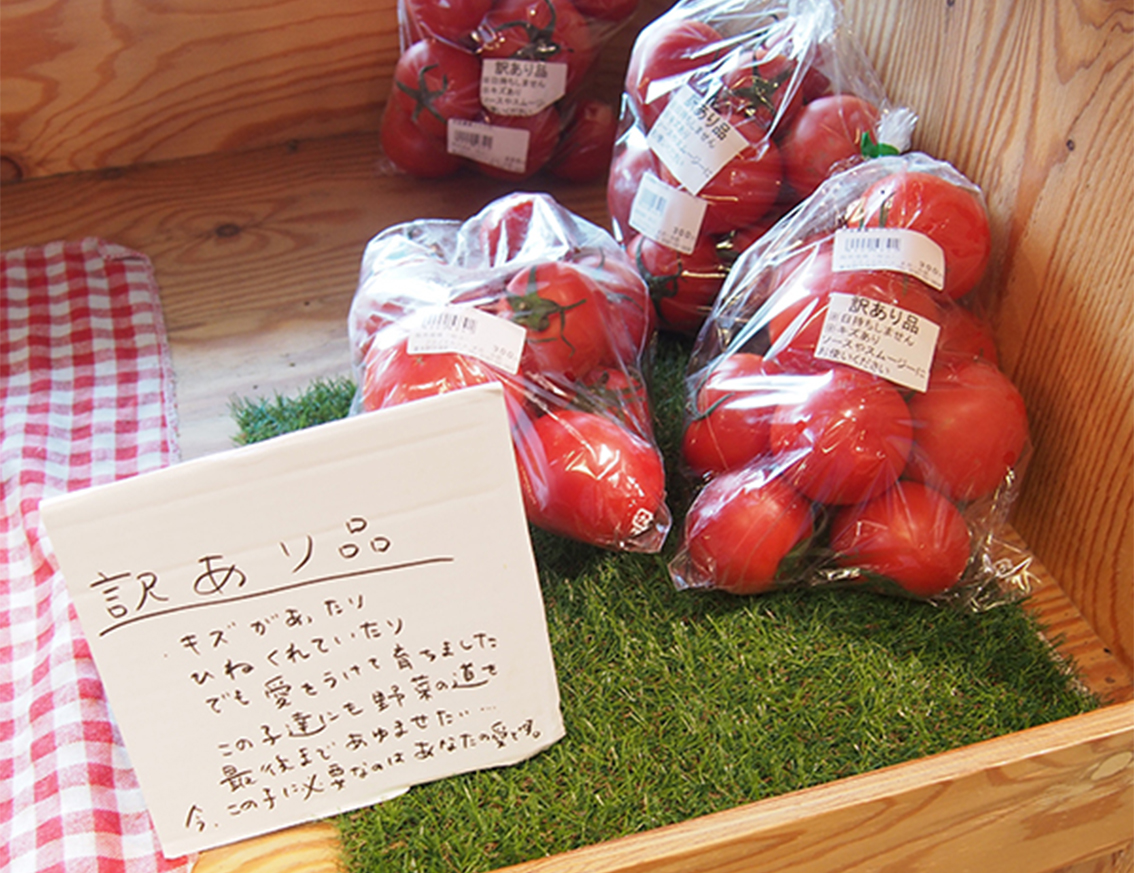 訳あり品
※日持ちしません
※キズあり
ソースやスムージーに
お使いください
訳あり品
日持ちしません
キズあり
訳あり品
※日持ちしません
※キズあり
ソースやスムージーに
お使いください
訳あり品
キズがあったり
ひねくれていたり
でも愛をうけて育ちました
この子達にも野菜の道を
最後まであゆませたい…
今、この子に必要なのはあなたの愛です。